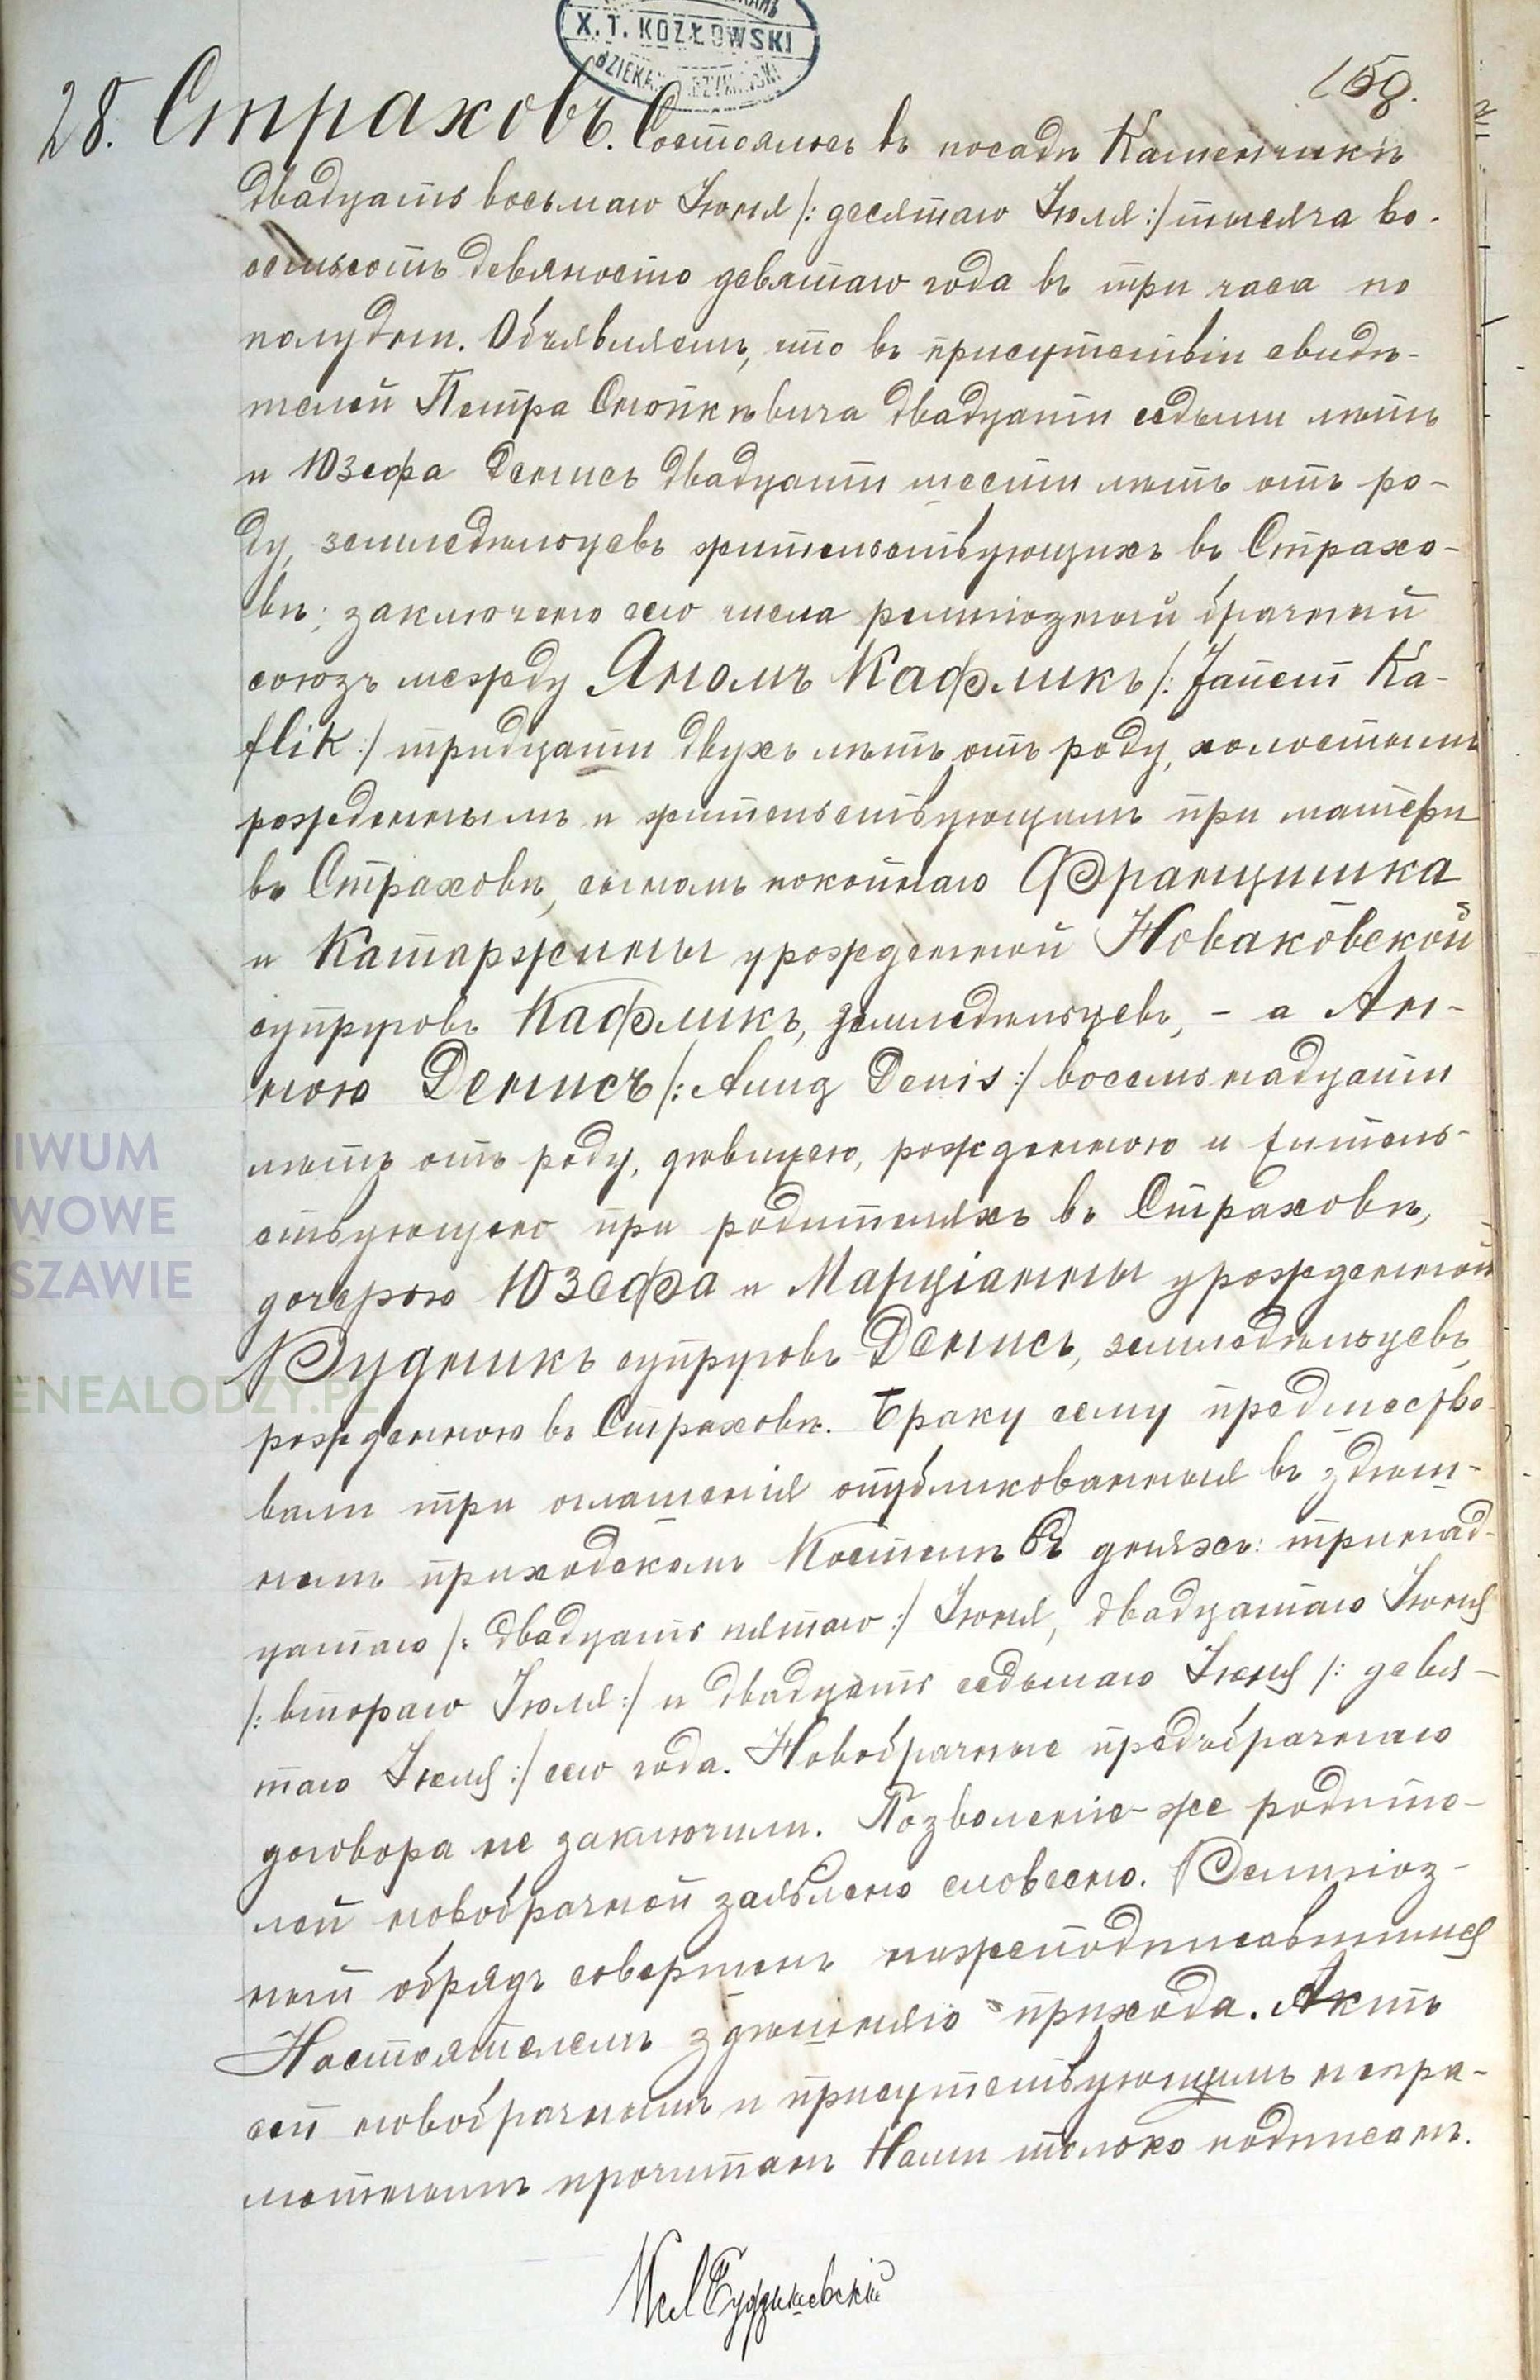 X. T. KOZŁOWSKI
159.
28. Страховъ. Состоялось въ посадѣ Каменчикѣ
двадцать восьмаго Іюня /: десятаго Іюля :/ тысяча во-
семьсотъ девяносто девятаго года въ три часа по
полудни. Объявляемъ, что въ присутствіи свидѣ-
телей Петра двадцати седьми лѣтъ
и Юзефа Денисъ двадцати шести лѣтъ отъ ро-
ду, земледѣльцевъ жительствующихъ въ Страхо-
вѣ; заключенъ сего числа религіозный брачный
союзъ между Яномъ Кафликъ /: Janem Ka-
flik :/ тридцати двухъ лѣтъ отъ роду, холостымъ
рожденнымъ и жительствующимъ при матери
въ Страховѣ, сыномъ покойнаго Францишка
и Катаржины урожденной Новаковской
супруговъ Кафликъ, земледѣльцевъ, - а Ан-
ною Денисъ /: Anną Denis :/ восемьнадцати
лѣтъ отъ роду, дѣвицею, рожденною и житель-
ствующею при родителяхъ въ Страховѣ,
дочерью Юзефа и Марціанны урожденной
Рудникъ супруговъ Денисъ, земледѣльцевъ,
рожденною въ Страховѣ. Браку сему предшество-
вали три оглашенія опубликованныя въ здѣш-
немъ приходскомъ Костелѣ въ дняхъ: тринад-
цатаго /: двадцать пятаго :/ Іюня, двадцатаго Іюня
/: втораго Іюля :/ и двадцать седьмаго Іюня /: девя-
таго Іюля :/ сего года. Новобрачные предъбрачнаго
договора не заключили. Позволеніе-же родите-
лей новобрачной заявлено словесно. Религіоз-
ный обрядъ совершенъ нижеподписавшимся
Настоятелемъ здѣшняго прихода. Актъ
сей новобрачнымъ и присутствующимъ негра-
мотнымъ прочитанъ Нами только подписанъ.
IWUM
WOWE
SZAWIE
ENEALODZY.PL